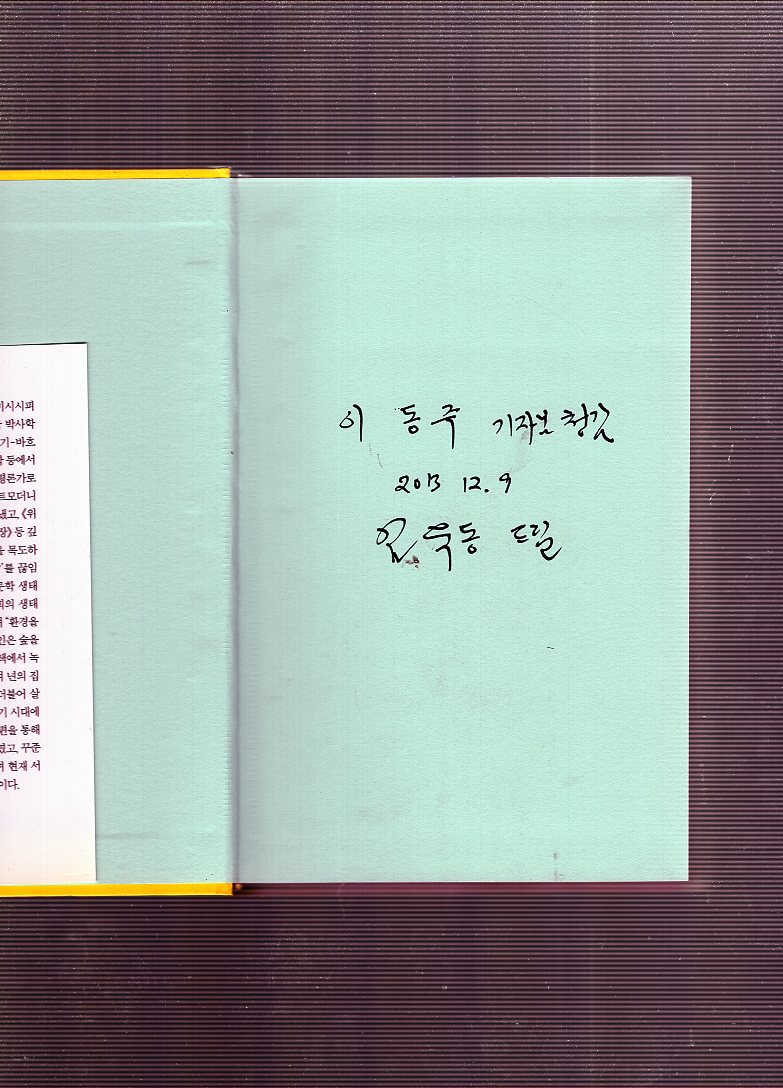 미시시피
박사학
기-바흐
등에서
평론가로
트모더니
냈고, 《위
장》 등 깊
을 목도하
를 끊임
문학 생태
의 생태
“환경을
인은 숲을
색에서 녹
년의 집
더불어 살
기 시대에
편을 통해
였고, 꾸준
며 현재 서
이다.
이 동 주 기자님 청감
2013 12. 9
김 욱동 드림